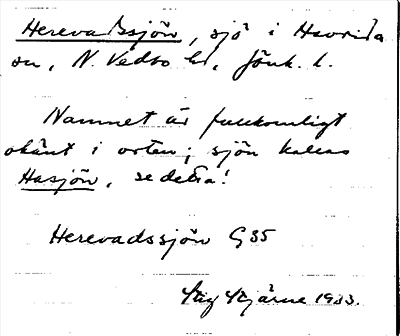 Herevadssjön, sjö i Haurida
sn, N. Vedbo hd, Jönk. l.
Namnet är fullkomligt
okänt i orten; sjön kallas
Hasjön, se detta!
Herevadssjön G35
Stig Stjärne 1933.